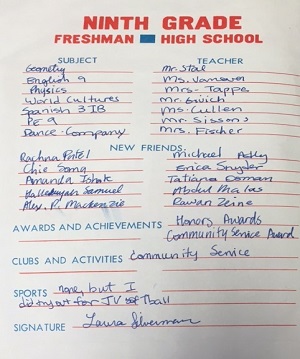 NINTH GRADE
FRESHMAN HIGH SCHOOL
SUBJECT TEACHER
Geometry Mr. Stal
English 9 Ms. Vansaven
Physics Mrs. Tappe
World Cultures Mr.
Spanish 3 IB Ms. Cullen
PE 9 Mr. Sissons
Dance Company Mrs. Fischer
NEW FRIENDS
Rachna Patel Michael
Chie Song Erica Snyder
Amanda Tatiana
Samuel Abdul
Alex. P. Mackenzie Rawan Zeine
AWARDS AND ACHIEVEMENTS Honors Awards
Community Service Award
CLUBS AND ACTIVITIES Community Service
SPORTS none, but I
did try out for JV softball
SIGNATURE Laura Silverman